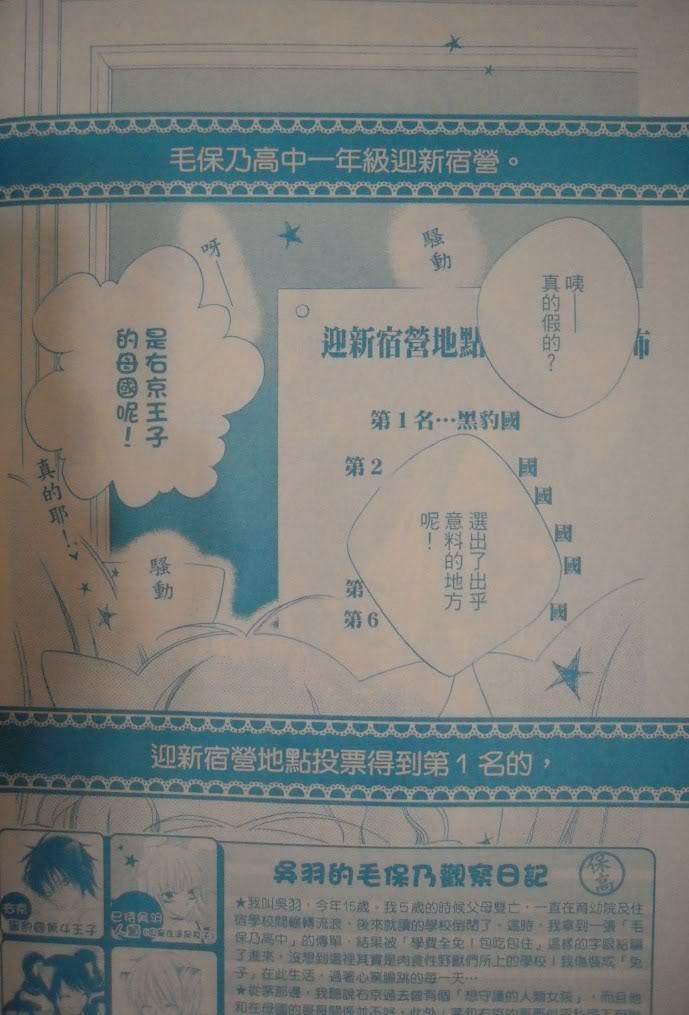 毛保乃高中一年級迎新宿營。
咦——
真的假的？
騷動
呀——
是右京王子
的母國呢！
真的耶！
迎新宿營地點
佈
第1名…黑豹國
第2
國
國
國
國
第
第6
國
選出了出乎
意料的地方
呢！
騷動
迎新宿營地點投票得到第1名的，
吳羽的毛保乃觀察日記
保高
右京
黑豹國第4王子
人類
★我叫吳羽，今年15歲，我5歲的時候父母雙亡，一直在育幼院及住
宿學校間輾轉流浪，後來就讀的學校倒閉了。這時，我拿到一張「毛
保乃高中」的傳單，結果被「學費全免！包吃包住」這樣的字眼給騙
了進來，沒想到這裡其實是肉食性野獸們所上的學校！我偽裝成「兔
子」在此生活，過著心驚膽跳的每一天…
★從茅那邊，我聽說右京過去曾有個「想守護的人類女孩」，而且他